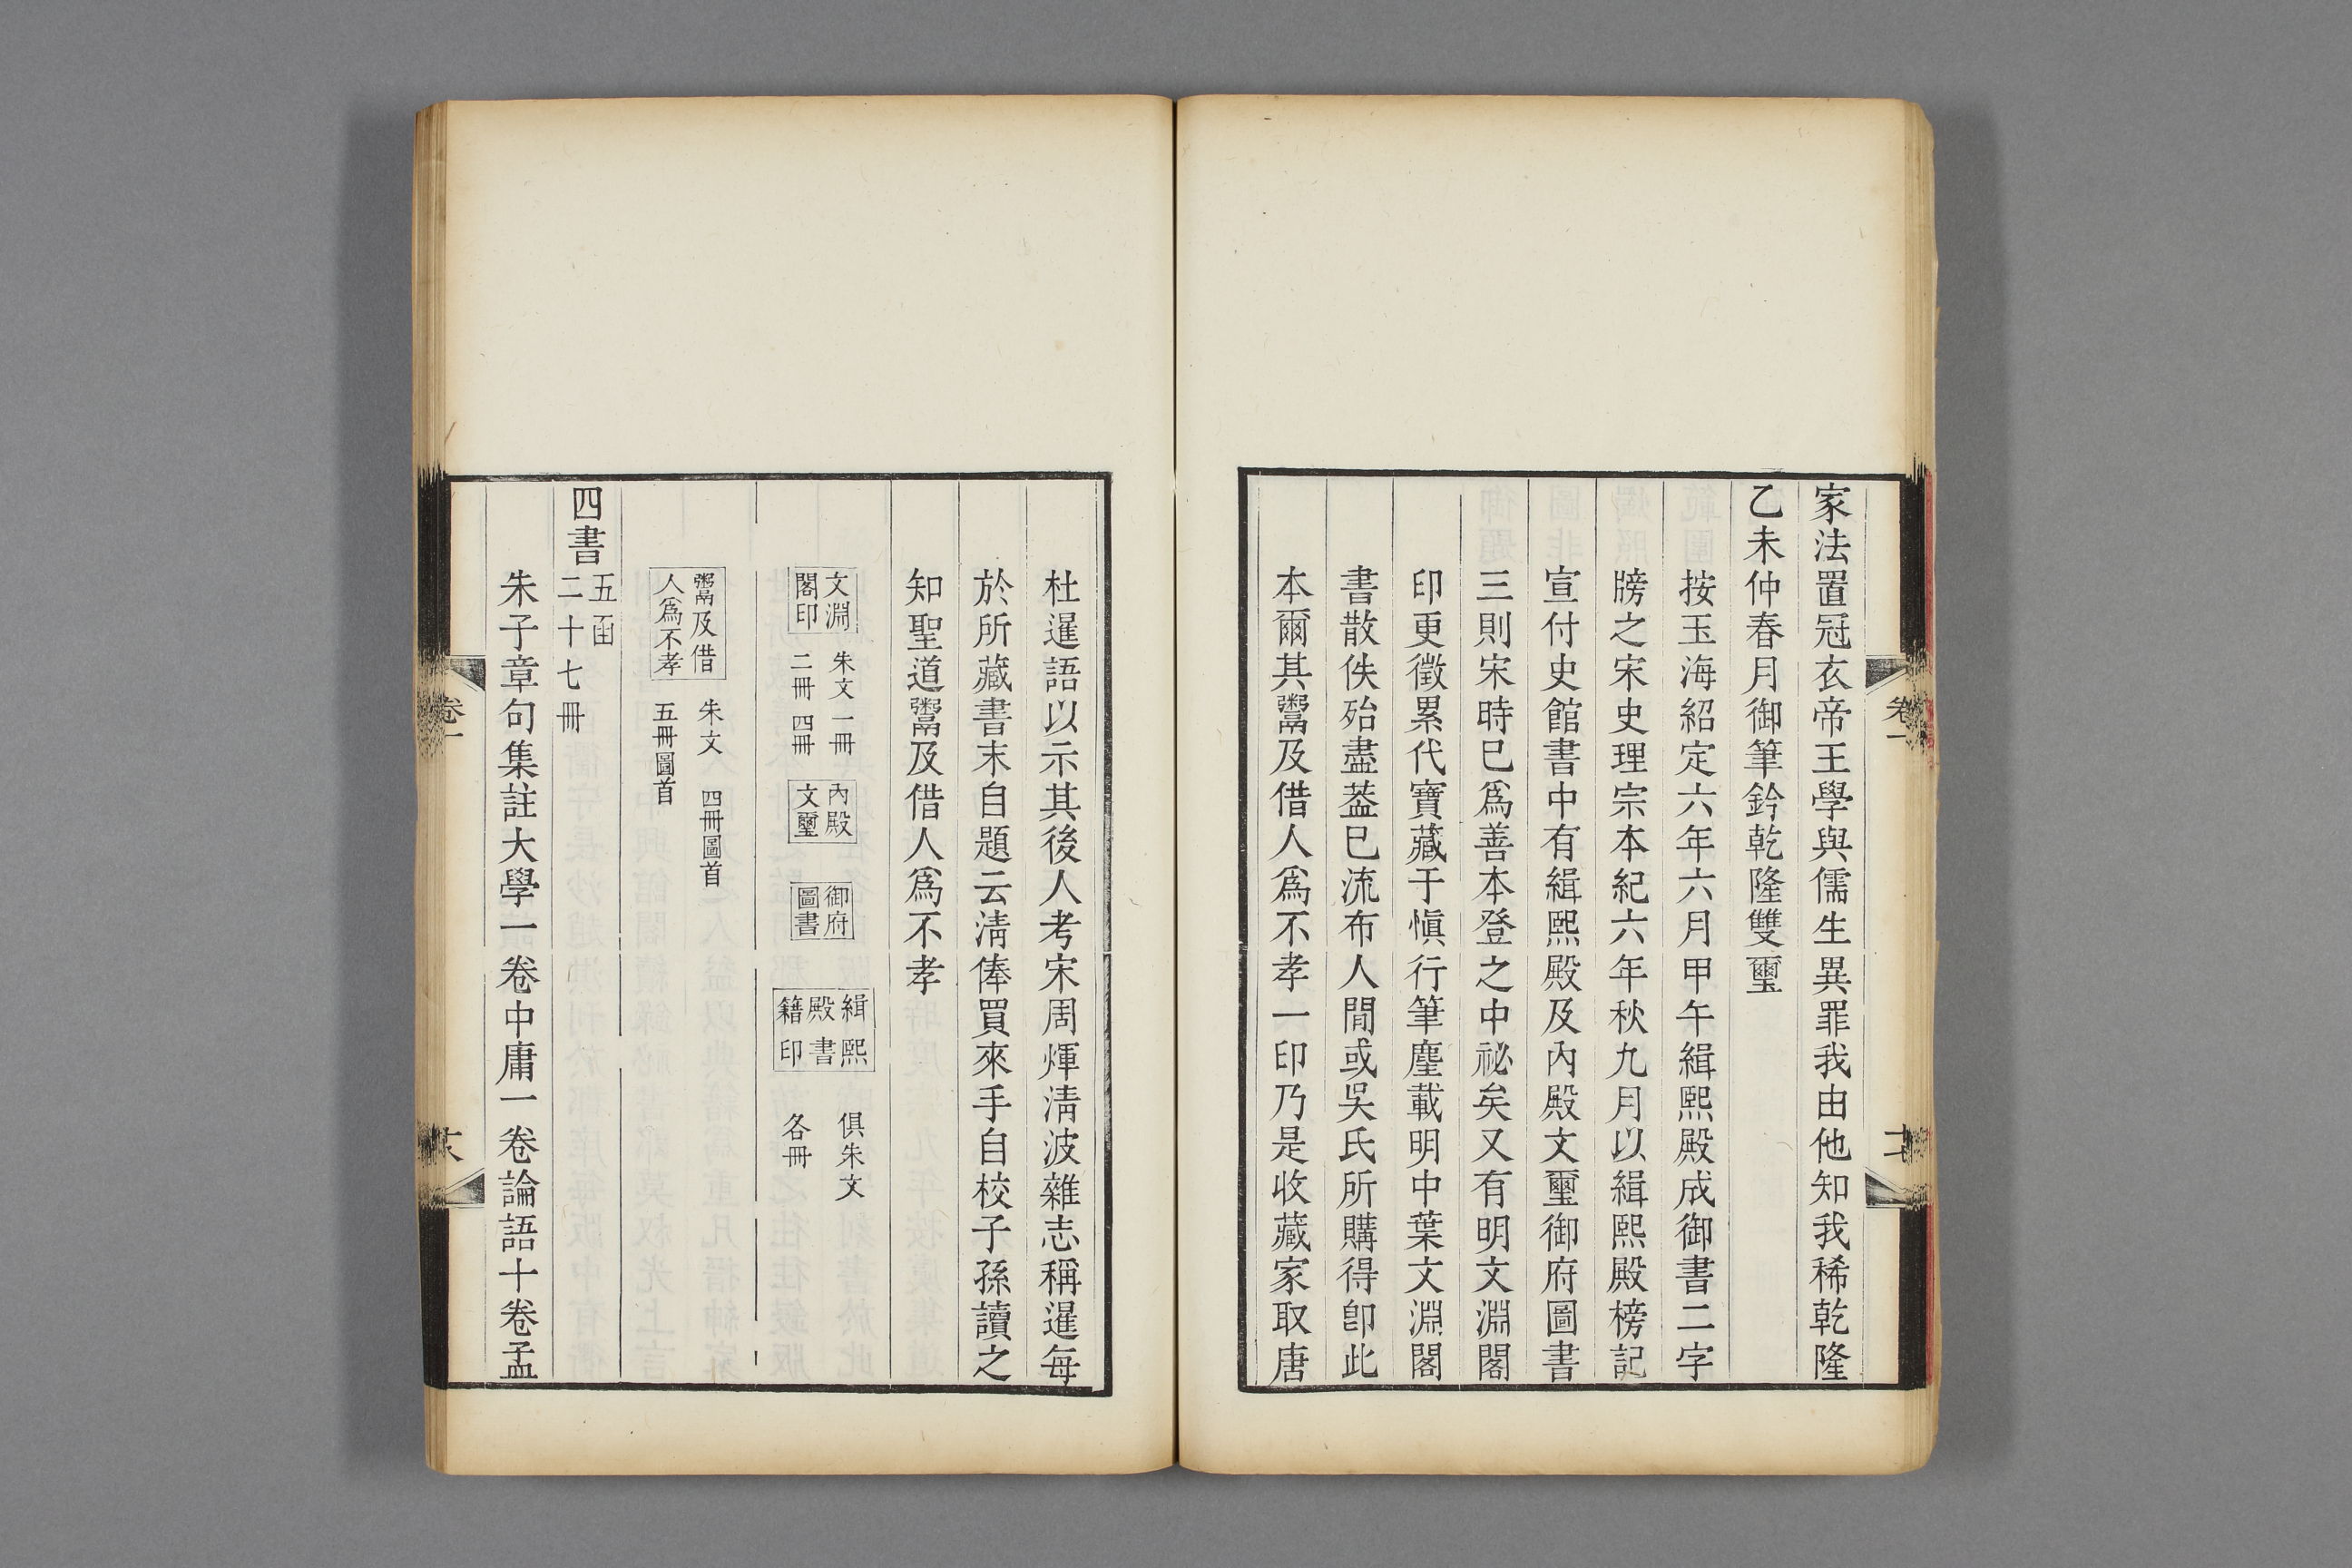 家法置冠衣帝王學與儒生異罪我由他知我稀乾隆
乙未仲春月御筆鈐乾隆雙璽
按玉海紹定六年六月甲午緝熙殿成御書二字
牓之宋史理宗本紀六年秋九月以緝熙殿榜記
宣付史館書中有緝熙殿及內殿文璽御府圖書
三則宋時已爲善本登之中祕矣又有明文淵閣
印更徵累代寶藏于慎行筆麈載明中葉文淵閣
書散佚殆盡葢已流布人閒或吳氏所購得卽此
本爾其鬻及借人爲不孝一印乃是收藏家取唐
卷一
十七
杜暹語以示其後人考宋周煇淸波雜志稱暹每
於所藏書末自題云淸俸買來手自校子孫讀之
知聖道鬻及借人爲不孝
文淵
閣印
朱文一冊
二冊四冊
內殿
文璽
御府
圖書
緝熙
殿書
籍印
俱朱文
各冊
鬻及借
人爲不孝
朱文
四冊圖首
五冊圖首
四書
五函
二十七冊
朱子章句集註大學一卷中庸一卷論語十卷孟
卷一